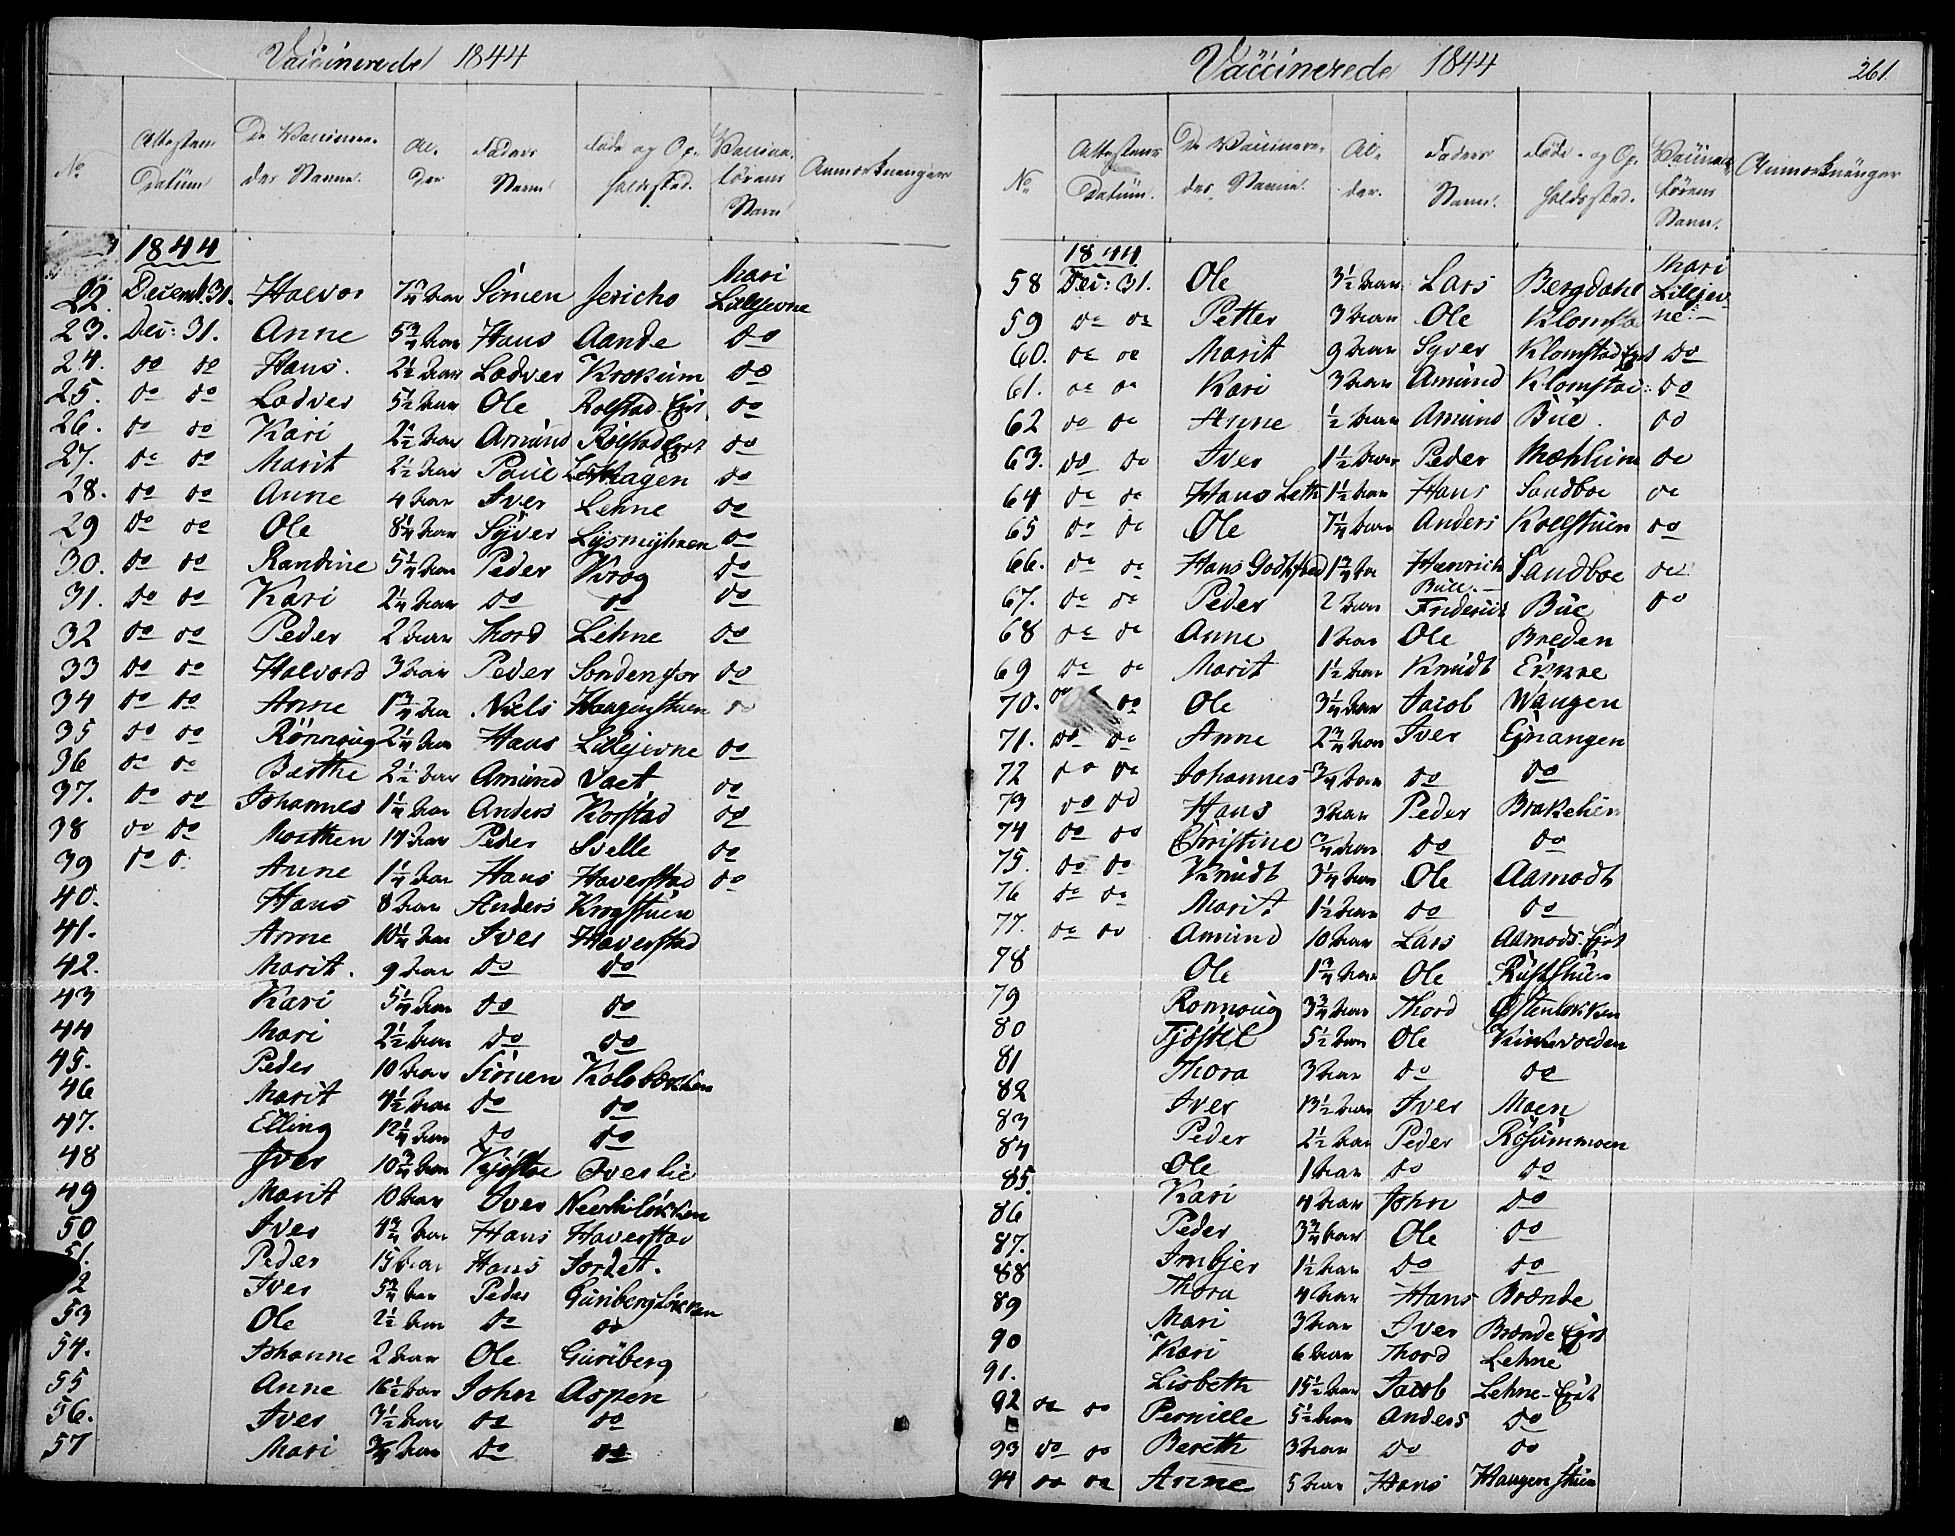 Vaccinerede 1844
No Attestens Datum De Vaccinere- des Navne. Al- der Faders Navn Føde og Op- holdssted. Vaccina- törens Navn Anmærkninger
1844
22. Decemb. 31. Halvor 7 3/4 Aar Simen Jericho Mari Lillejevne
23. Dec: 31. Anne 5 3/4 Aar Hans Aande do
24. do do Hans. 2 1/2 Aar Ladver Krokum do
25. do do Ladver 5 1/2 Aar Ole Rolstad Ejet do
26. do do Kari 2 1/2 Aar Amund Rolstad Ejet do
27. do do Marit 2 1/2 Aar Paul do
28. do do Anne 4 Aar Iver Lehne do
29 do do Ole 8 1/4 Aar Syver Lysmyhren do
30. do do Randine 5 1/4 Aar Peder Krog do
31. do do Kari 2 1/4 Aar do do do
32 do do Peder 2 Aar Thord Lehne do
33 do do Halvord 3 Aar Peder Sondenfor do
34 do do Anne 1 3/4 Aar Niels Haugenstuen do
35 do do Rönnoug 2 1/4 Aar Hans Lillejevne do
36 do do Berthe 2 1/2 Aar Amund do
37. do do Johannes 1 1/4 Aar Anders Korstad do
38 do do Morthen 14 Aar Peder Svelle do
39 do d Anne 1 1/4 Aar Hans Haverstad do
40. Hans 8 Aar Anders Krogstuen
41. Anne 10 1/4 Aar Iver Haverstad
42. Marit. 9 Aar do do
43 Kari 5 1/4 Aar do do
44 Mari 2 1/2 Aar do do
45. Peder 10 Aar Simen Kolobækken
46 Marit 4 1/2 Aar do do
47. Elling 12 1/4 Aar do do
48 Iver 10 3/4 Aar Kjöstel Overlie
49 Marit 10 Aar Iver
50 Iver 4 3/4 Aar Hans Haverstad
51. Peder 15 Aar Hans Jordet.
2 Iver 5 3/4 Aar Peder Guribergløkken
53 Ole 2 1/2 Aar do do
54. Johanne 2 Aar Ole Guriberg
55 Anne 16 1/2 Aar John Aspen
56. Iver 3 1/2 Aar do do
57 Mari 3/4 Aar do do
Vaccinerede 1844
261.
No Attestens Datum. De Vaccinere- des Navne. Al- der. Faders Navn. Føde- og Op- holdssted. Vaccina- törens Navn. Anmærkninger
1844
58 Dec: 31. Ole 3 1/2 Aar Lars Bergdahl Mari Lillejev-
59 do do Petter 3 Aar Ole Klomsta ne.
60. do do Marit 9 Aar Syver Klomstad Ejet do
61. do do Kari 3 Aar Amund Klomstad: do
62 do do Anne 1/2 Aar Amund Bue. do
63. do do Iver 1 1/2 Aar Peder Mæhlum do
64 do do Hans Leth 1 1/2 Aar Hans Sandboe do
65 do do Ole 7 1/4 Aar Anders Kollstuen do
66. do do Hans Godtfred 1 3/4 Aar Henrich Bull.- Sandboe do
67. do do Peder 2 Aar Friderich Bue do
68 do do Anne 1 Aar Ole Breden
69 do do Marit 1 1/2 Aar Knudt
70. do do Ole 3 1/4 Aar Jacob Wangen
71. do do Anne 2 3/4 Aar Iver Ejnangen
72 do do Johannes 3/4 Aar do do
73 do do Hans 3 Aar Peder Brakelien
74 do do Christine 3/4 Aar do do
75. do do Knudt 3 1/4 Aar Ole Aamodt
76 do do Marit. 1 1/2 Aar do do
77. do do Amund 10 Aar Lars Aamods. Ejet
78 Ole 1 3/4 Aar Ole Ruststuen
79 Ronnoug 3 3/4 Aar Thord Østenløkken
80 Tjöstel 5 1/2 Aar Ole
81 Thora 3 Aar do do
82 Iver 13 1/2 Aar Iver Moen
83 Peder 2 1/2 Aar Peder Rosummoen
84 Ole 1 Aar do do
85. Kari 4 Aar John do
86 Peder 3 3/4 Aar Ole do
87. Imbjer 1 1/2 Aar do do
88 Thora 4 Aar Hans Brænde
89 Mari 3 Aar Iver Brænde Ejet
90 Kari 6 Aar Thord Lehne
91. Lisbeth 15 1/2 Aar Jacob Lehne-Ejet
92 do do Pernille 5 1/2 Aar Anders do
93 do do Bereth 3 Aar do do
94 do do Anne 5 Aar Hans Haugenstuen